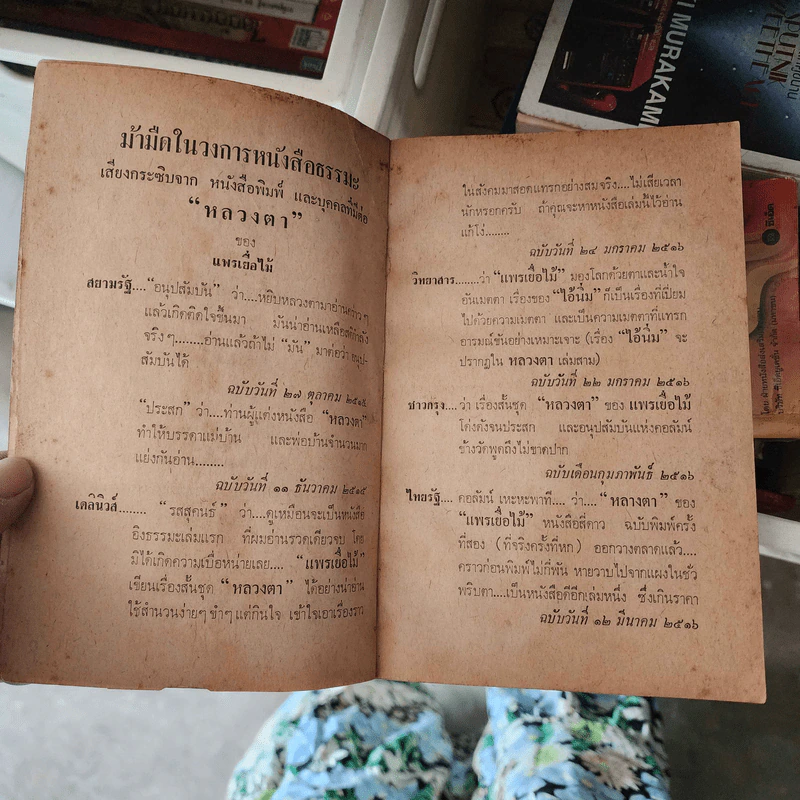 ม้ามืดในวงการหนังสือธรรมะ
เสียงกระซิบจาก หนังสือพิมพ์ และบุคคลที่มีต่อ
“หลวงตา”
ของ
แพรเยื่อไม้
สยามรัฐ....“อนุปสัมบัน” ว่า....หยิบหลวงตามาอ่านคร่าวๆ
แล้วเกิดติดใจขึ้นมา มันน่าอ่านเหลือสติกำลัง
จริงๆ........อ่านแล้วถ้าไม่ “มัน” มาต่อว่า อนุป-
สัมบันได้
ฉบับวันที่ ๒๗ ตุลาคม ๒๕๑๕
“ประสก” ว่า....ท่านผู้แต่งหนังสือ “หลวงตา”
ทำให้บรรดาแม่บ้าน และพ่อบ้านจำนวนมาก
แย่งกันอ่าน........
ฉบับวันที่ ๑๑ ธันวาคม ๒๕๑๕
เดลินิวส์........ “รสสุคนธ์” ว่า....ดูเหมือนจะเป็นหนังสือ
อิงธรรมะเล่มแรก ที่ผมอ่านรวดเดียวจบ โดย
มิได้เกิดความเบื่อหน่ายเลย.... “แพรเยื่อไม้”
เขียนเรื่องสั้นชุด “หลวงตา” ได้อย่างน่าอ่าน
ใช้สำนวนง่ายๆ ขำๆ แต่กินใจ เข้าใจเอาเรื่องราว
ในสังคมมาสอดแทรกอย่างสมจริง....ไม่เสียเวลา
นักหรอกครับ ถ้าคุณจะหาหนังสือเล่มนี้ไว้อ่าน
แก้โง่........
ฉบับวันที่ ๒๔ มกราคม ๒๕๑๖
วิทยาสาร........ว่า “แพรเยื่อไม้” มองโลกด้วยตาและน้ำใจ
อันเมตตา เรื่องของ “ไอ้นิ่ม” ก็เป็นเรื่องที่เปี่ยม
ไปด้วยความเมตตา และเป็นความเมตตาที่แทรก
อารมณ์ขันอย่างเหมาะเจาะ (เรื่อง “ไอ้นิ่ม” จะ
ปรากฏใน หลวงตา เล่มสาม)
ฉบับวันที่ ๒๒ มกราคม ๒๕๑๖
ชาวกรุง....ว่า เรื่องสั้นชุด “หลวงตา” ของ แพรเยื่อไม้
โด่งดังจนประสก และอนุปสัมบันแห่งคอลัมน์
ข้างวัดพูดถึงไม่ขาดปาก
ฉบับเดือนกุมภาพันธ์ ๒๕๑๖
ไทยรัฐ.... คอลัมน์ เหะหะพาที.... ว่า.... “หลวงตา” ของ
“แพรเยื่อไม้” หนังสือสี่ดาว ฉบับพิมพ์ครั้ง
ที่สอง (ที่จริงครั้งที่หก) ออกวางตลาดแล้ว....
คราวก่อนพิมพ์ไม่กี่พัน หายวาบไปจากแผงในชั่ว
พริบตา....เป็นหนังสือดีอีกเล่มหนึ่ง ซึ่งเกินราคา
ฉบับวันที่ ๑๒ มีนาคม ๒๕๑๖
I MURAKAMI